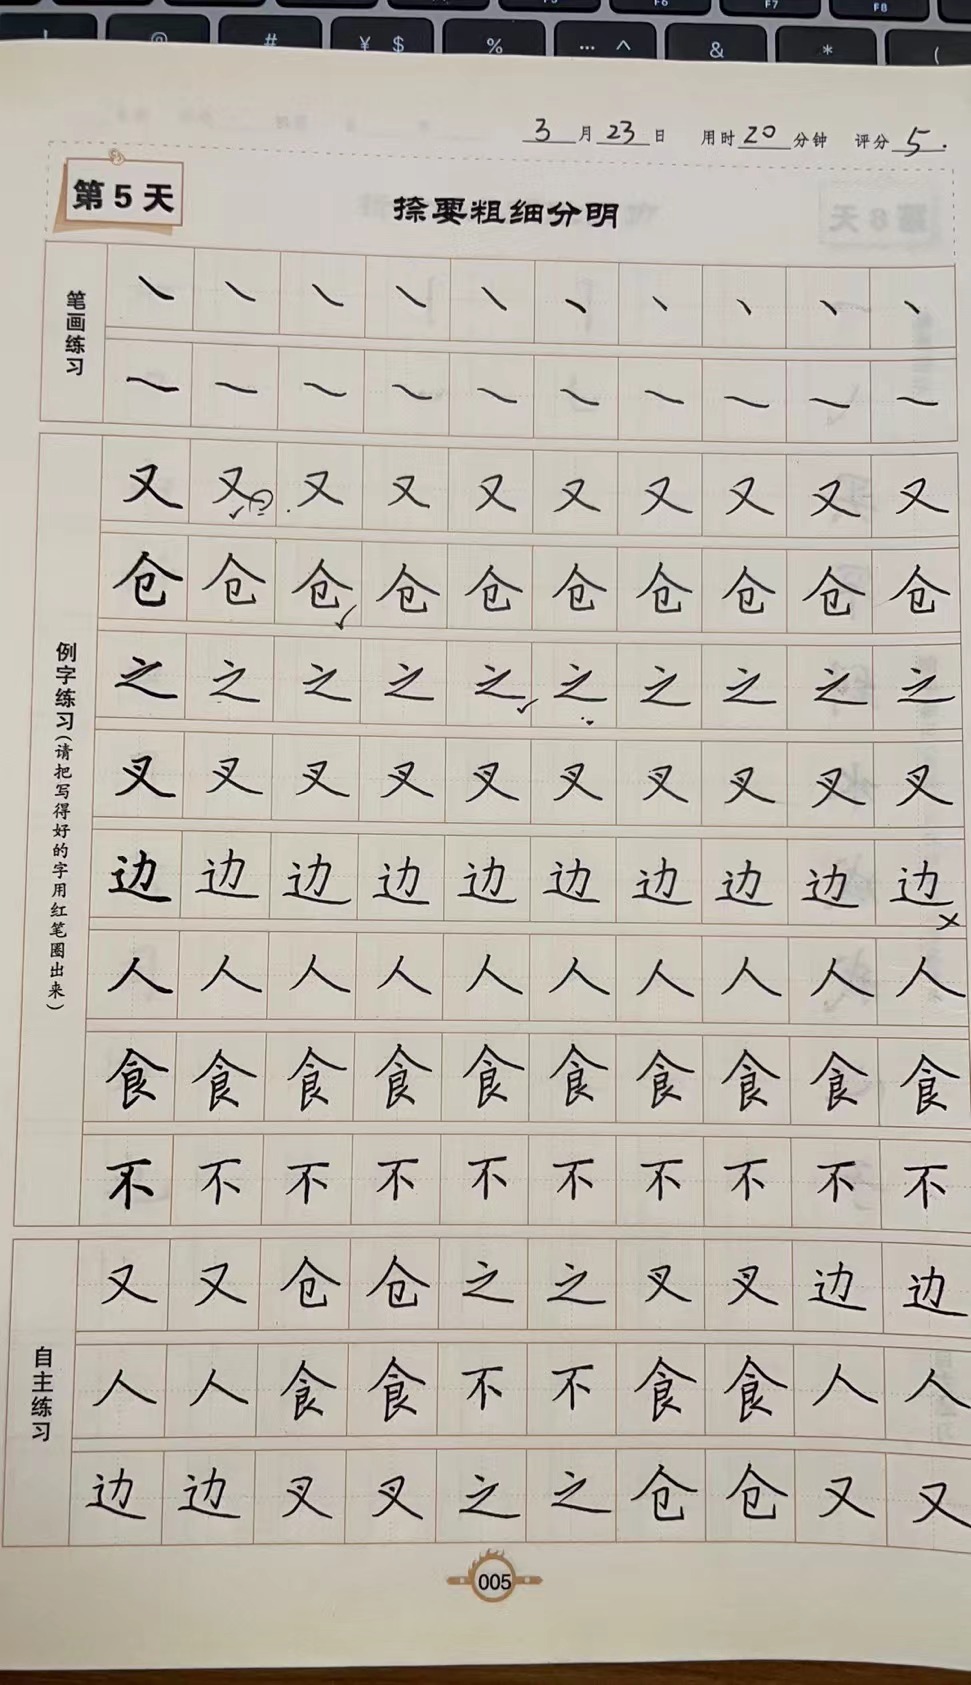 ! @ # ¥ $ % … ^ & * (
F6 F7 F8
3月23日 用时20分钟 评分5.
第5天
捺要粗细分明
笔画练习
例字练习(请把写得好的字用红笔圈出来)
又又又又又又又又又又
仓仓仓仓仓仓仓仓仓仓
之之之之之之之之之之
叉叉叉叉叉叉叉叉叉叉
边边边边边边边边边边
人人人人人人人人人人
食食食食食食食食食食
不不不不不不不不不不
自主练习
又又仓仓之之叉叉边边
人人食食不不食食人人
边边叉叉之之仓仓又又
005